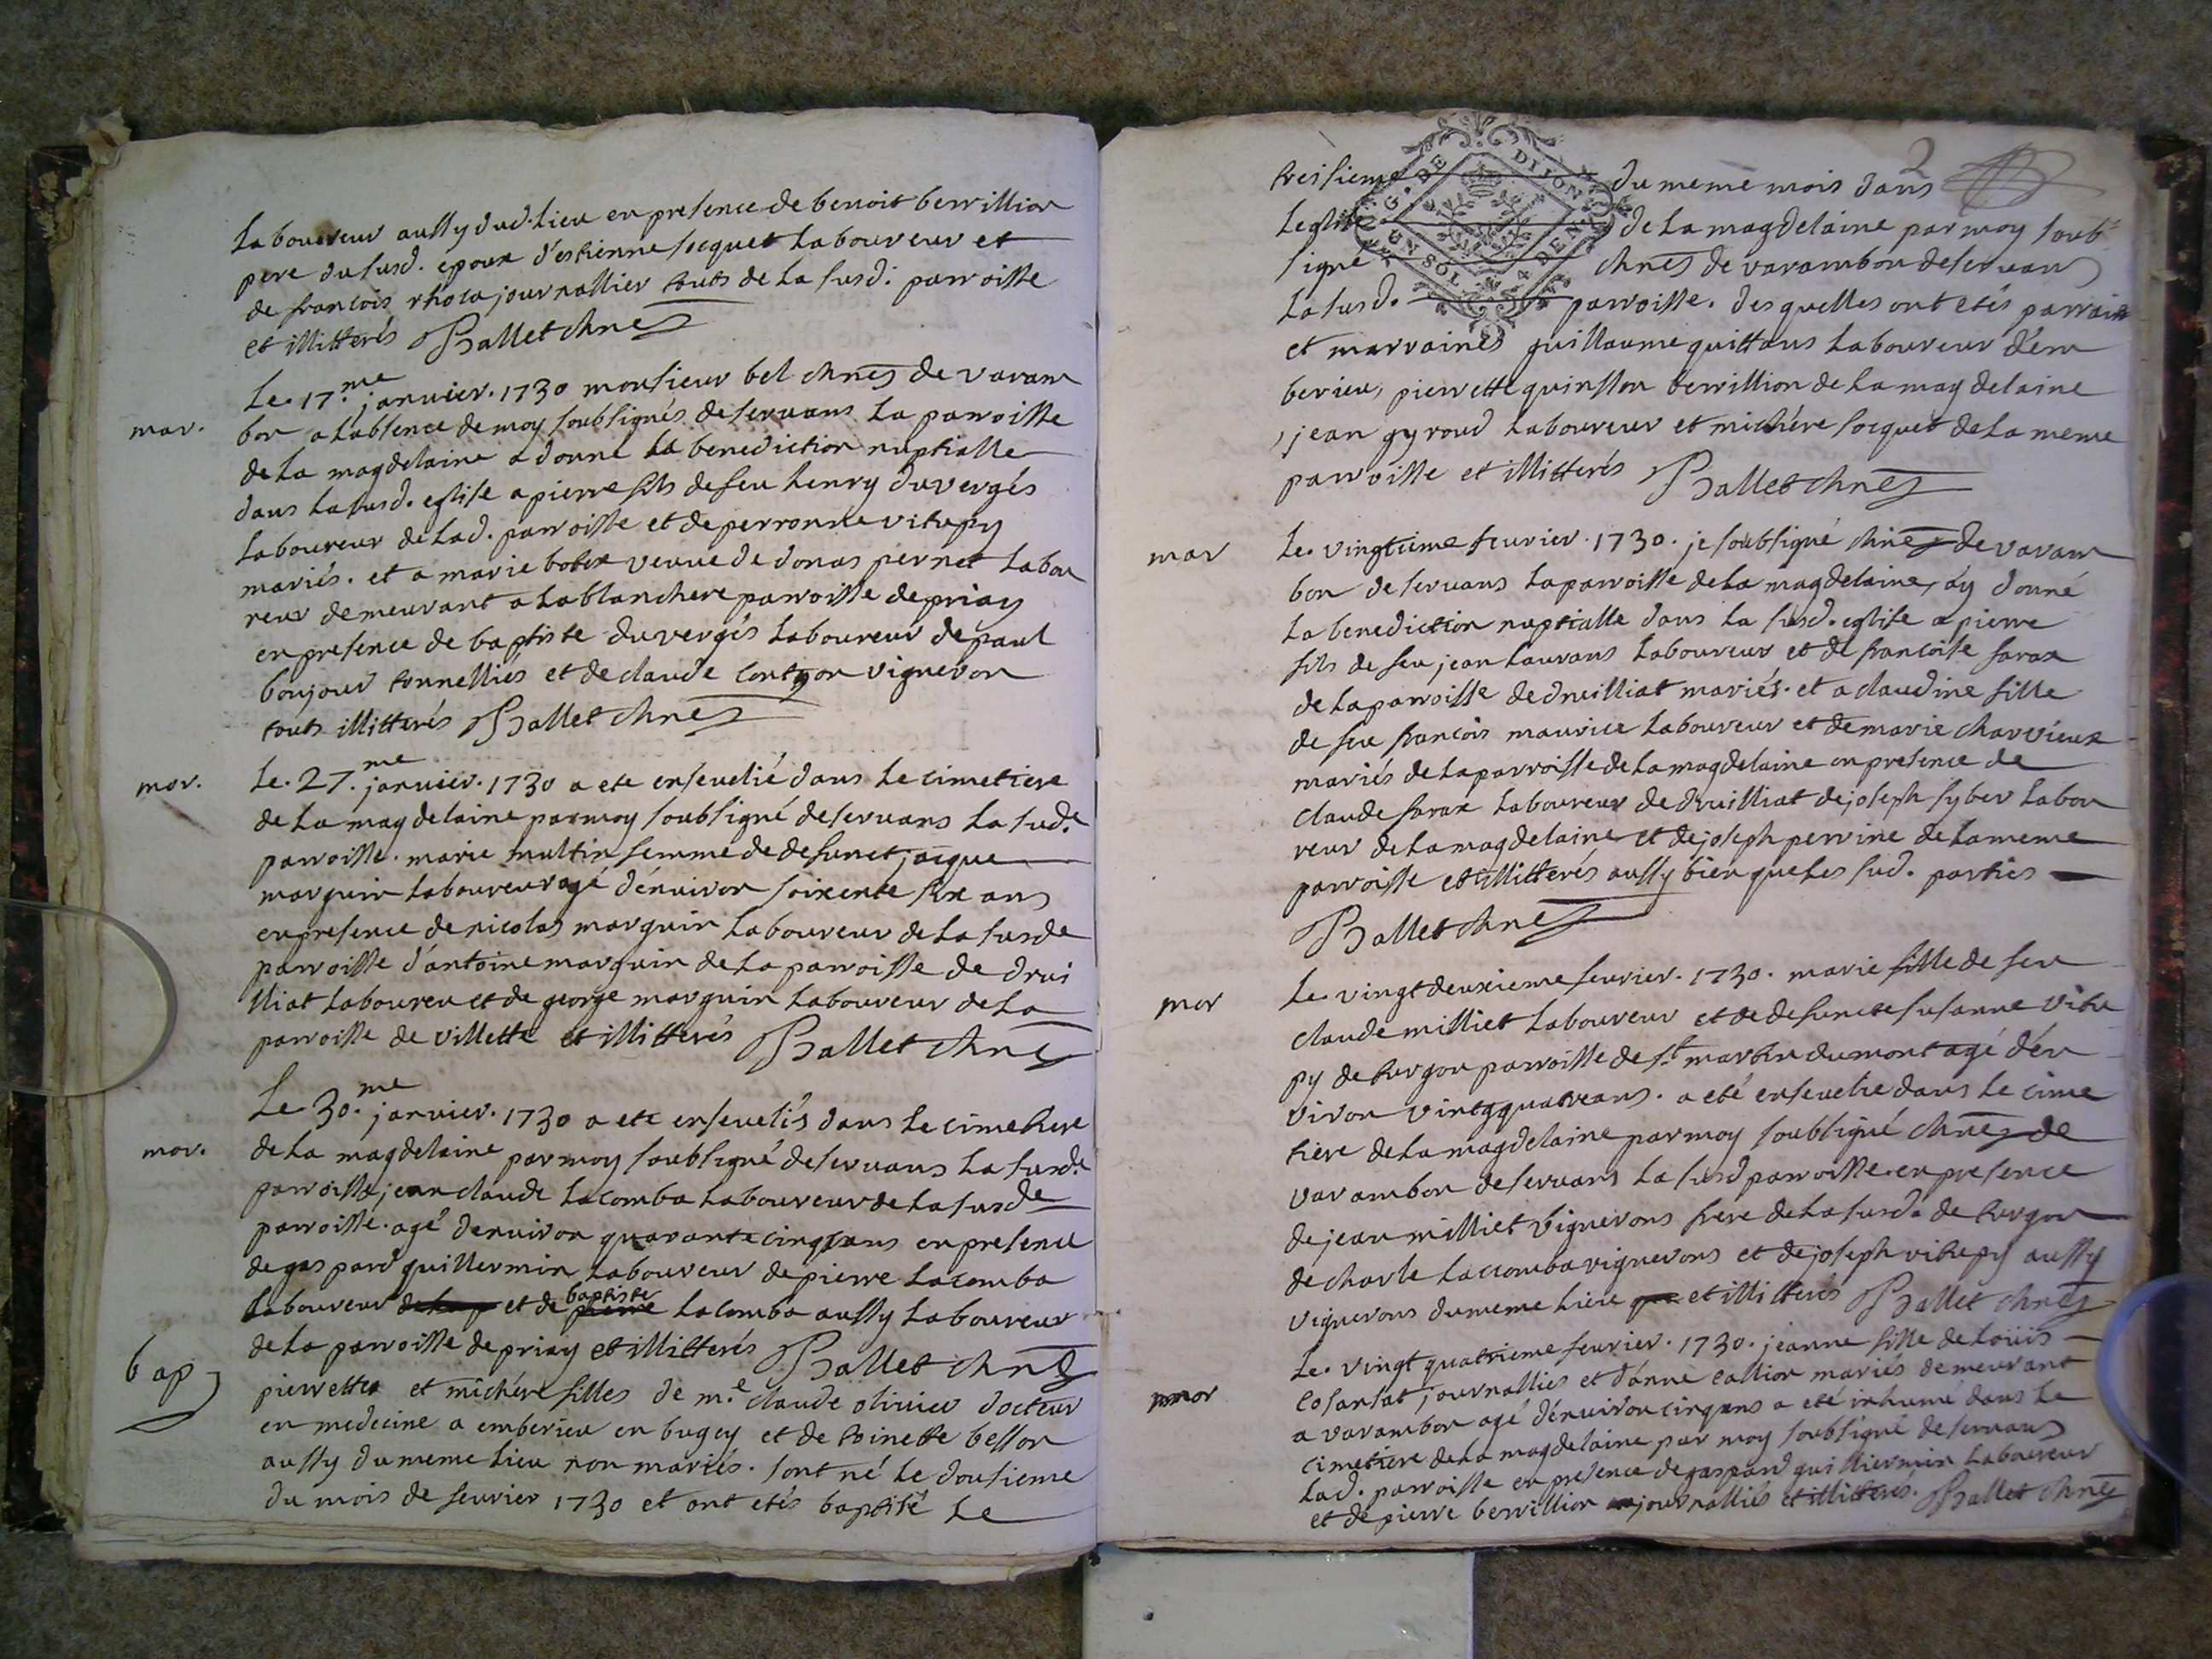 laboureur aussy dud. lieu en presence de benoit berrillion
pere du susd. epoux d'estienne socquet laboureur et
de francois rhota journallier touts de la susd. parroisse
et illitterés Ballet chne
mar.
le. 17.me janvier. 1730 monsieur bel chne de varam
bon a labsence de moy soubsignés deservans la parroisse
de la magdelaine a donné la benediction nuptialle
dans la susd. eglise a pierre fils de feu henry duvergés
laboureur de lad. parroisse et de perronne vitupy
mariés. et a marie bobex veuve de donas pernet labou
reur demeurant a la blanchere parroisse de priay
en presence de baptiste duvergés laboureur de paul
bonjour tonnelliés et de claude vigneron
touts illitterés Ballet chne
mor.
le. 27.me janvier. 1730 a ete ensevelié dans le cimetiere
de la magdelaine par moy soubsigné deservans la sud.e
parroisse. marie multin femme de defunct jacque
marguin laboureur agé d'environ soixente six ans
en presence de nicolas marguin laboureur de la susde
parroisse d'antoine marguin de la parroisse de drui
lliat laboureu et de george marguin laboureur de la
parroisse de villette et illitterés Ballet chne
mor.
Le 30.me janvier. 1730 a ete ensevelis dans le cimetiere
de la magdelaine par moy soubsigné deservans la susd.e
parroisse jean claude lacomba laboureur de la susde
parroisse. agé denviron quarante cinq ans en presence
de gaspard guillermin laboureur de pierre lacomba
laboureur et de baptiste lacomba aussy laboureur
de la parroisse de priay et illitterés Ballet chne
bap
pierrettes et michére filles de m.e claude olivier docteur
en medecine a emberieu en bugey et de toinette besson
aussy du meme lieu non mariés. sont né le dousieme
du mois de fevrier 1730 et ont etés baptisé le
2
treisieme du meme mois dans
leglise de la magdelaine par moy soub
signé chne de varambon deservans
la susd. parroisse. desquelles ont etés parrain
et marraines guillaume quittans laboureur d'em
berieu, pierrette quinsson berrillion de la magdelaine
, jean gyroud laboureur et michére socquet de la meme
parroisse et illitterés Ballet chne
G. DE DIJON
EN SOL 4 DENI
mar
le. vingtieme fevrier. 1730. je soubsigné chne de varam
bon deservans la parroisse de la magdelaine, ay donné
la benediction nuptialle dans la susd. eglise a pierre
fils de feu jean laurans laboureur et de francoise farax
de la parroisse de druilliat mariés. et a claudine fille
de feu francois maurice laboureur et de marie charvieux
mariés de la parroisse de la magdelaine en presence de
claude farax laboureur de druilliat de joseph syber labou
reur de la magdelaine et de joseph perrine de la meme
parroisse et illitterés aussy bien que les sud. parties
Ballet chne
mor
le. vingt deuxieme fevrier. 1730. marie fille de feu
claude milliet laboureur et de defuncte susanne vitu
py de turgon parroisse de st martin du mont agé d'en
viron vingt quatre ans. a eté ensevelie dans le cime
tiere de la magdelaine par moy soubsigné chne de
varambon deservans la susd parroisse. en presence
de jean milliet vignerons frere de la susd. de turgon
de charle lacomba vignerons et de joseph vitupy aussy
vignerons du meme lieu et illitterés Ballet chne
mor
le. vingt quatrieme fevrier. 1730. jeanne fille de loüis
cosansat journalliés et d'anne callion mariés demeurant
a varambon agé d'environ cinq ans a eté inhumé dans le
cimetiere de la magdelaine par moy soubsigné deservans
lad. parroisse en presence de gaspard guilliermin laboureur
et de pierre berrillion journalliés et illitterés. Ballet chne